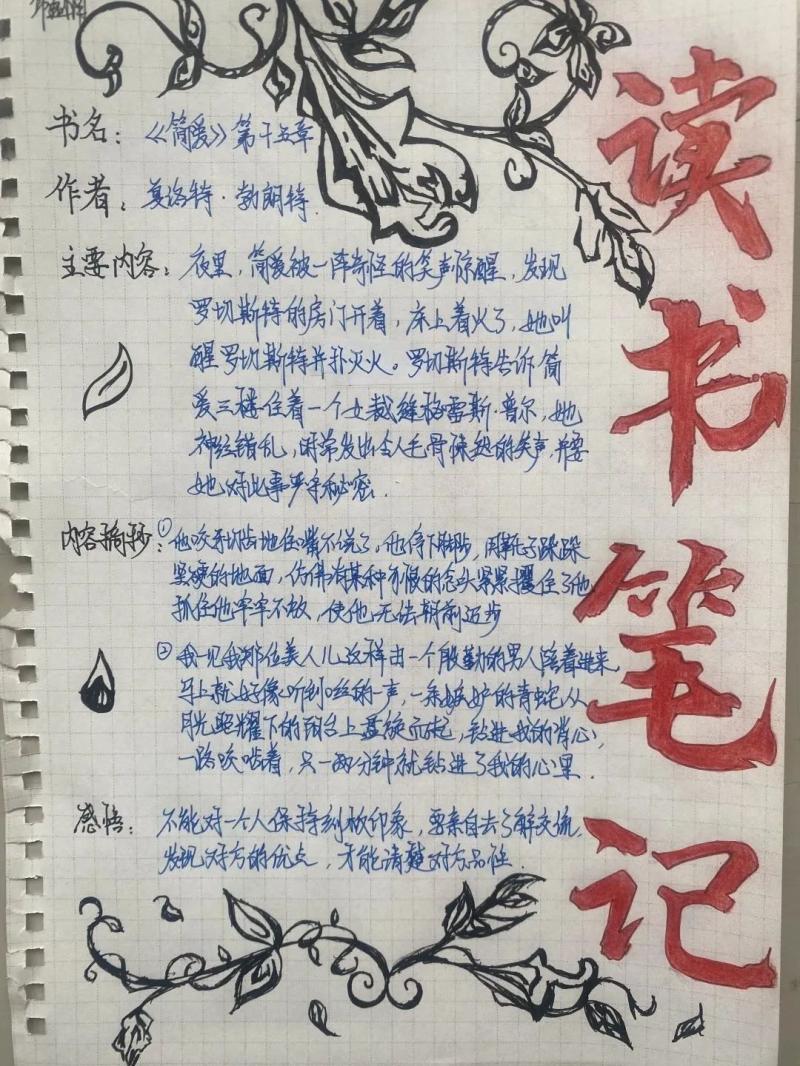 读书笔记
书名：《简爱》第十五章
作者：夏洛特·勃朗特.
主要内容：夜里，简爱被一阵奇怪的笑声惊醒，发现
罗切斯特的房门开着，床上着火了，她叫
醒罗切斯特并扑灭火。罗切斯特告诉简
爱三楼住着一个女裁缝格雷斯·普尔，她
神经错乱，时常发出令人毛骨悚然的笑声，并要
她对此事严守秘密.
内容摘抄：①他咬牙切齿地住嘴不说了，他停下脚步，用靴子跺跺
坚硬的地面，仿佛有某种可恨的念头紧紧攫住了他
抓住他牢牢不放，使他无法朝前迈步
②我一见我那位美人儿这样由一个殷勤的男人陪着进来，
马上就好像听到咝的一声，一条嫉妒的青蛇从
月光照耀下的阳台上盘旋而起，钻进我的背心，
一路啖啮着，只一两分钟就钻进了我的心里.
感悟：不能对一个人保持刻板印象，要亲自去了解交流，
发现对方的优点，才能清楚对方品性.